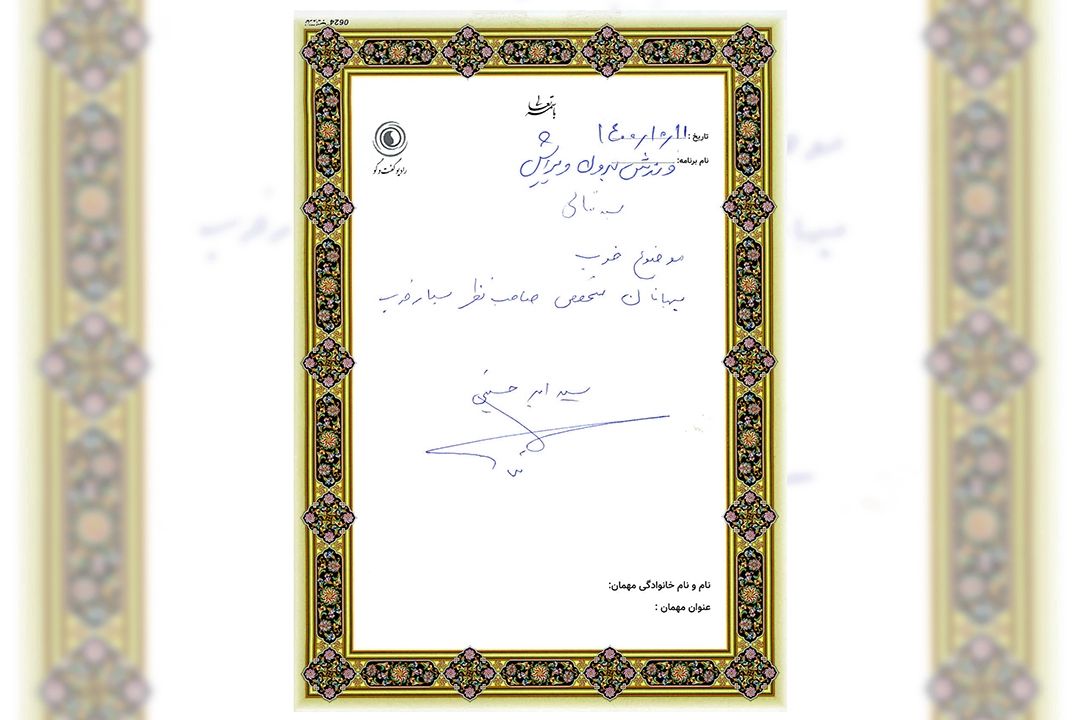 0624
باسمه تعالی
رادیو گفت و گو
تاریخ: ۱۴۰۰/۸/۱۱
نام برنامه: ورزش بدون ویرایش
موضوع خوب
میهمانان متخصص صاحب نظر بسیار خوب
سید امیر حسینی
نام و نام خانوادگی مهمان:
عنوان مهمان :